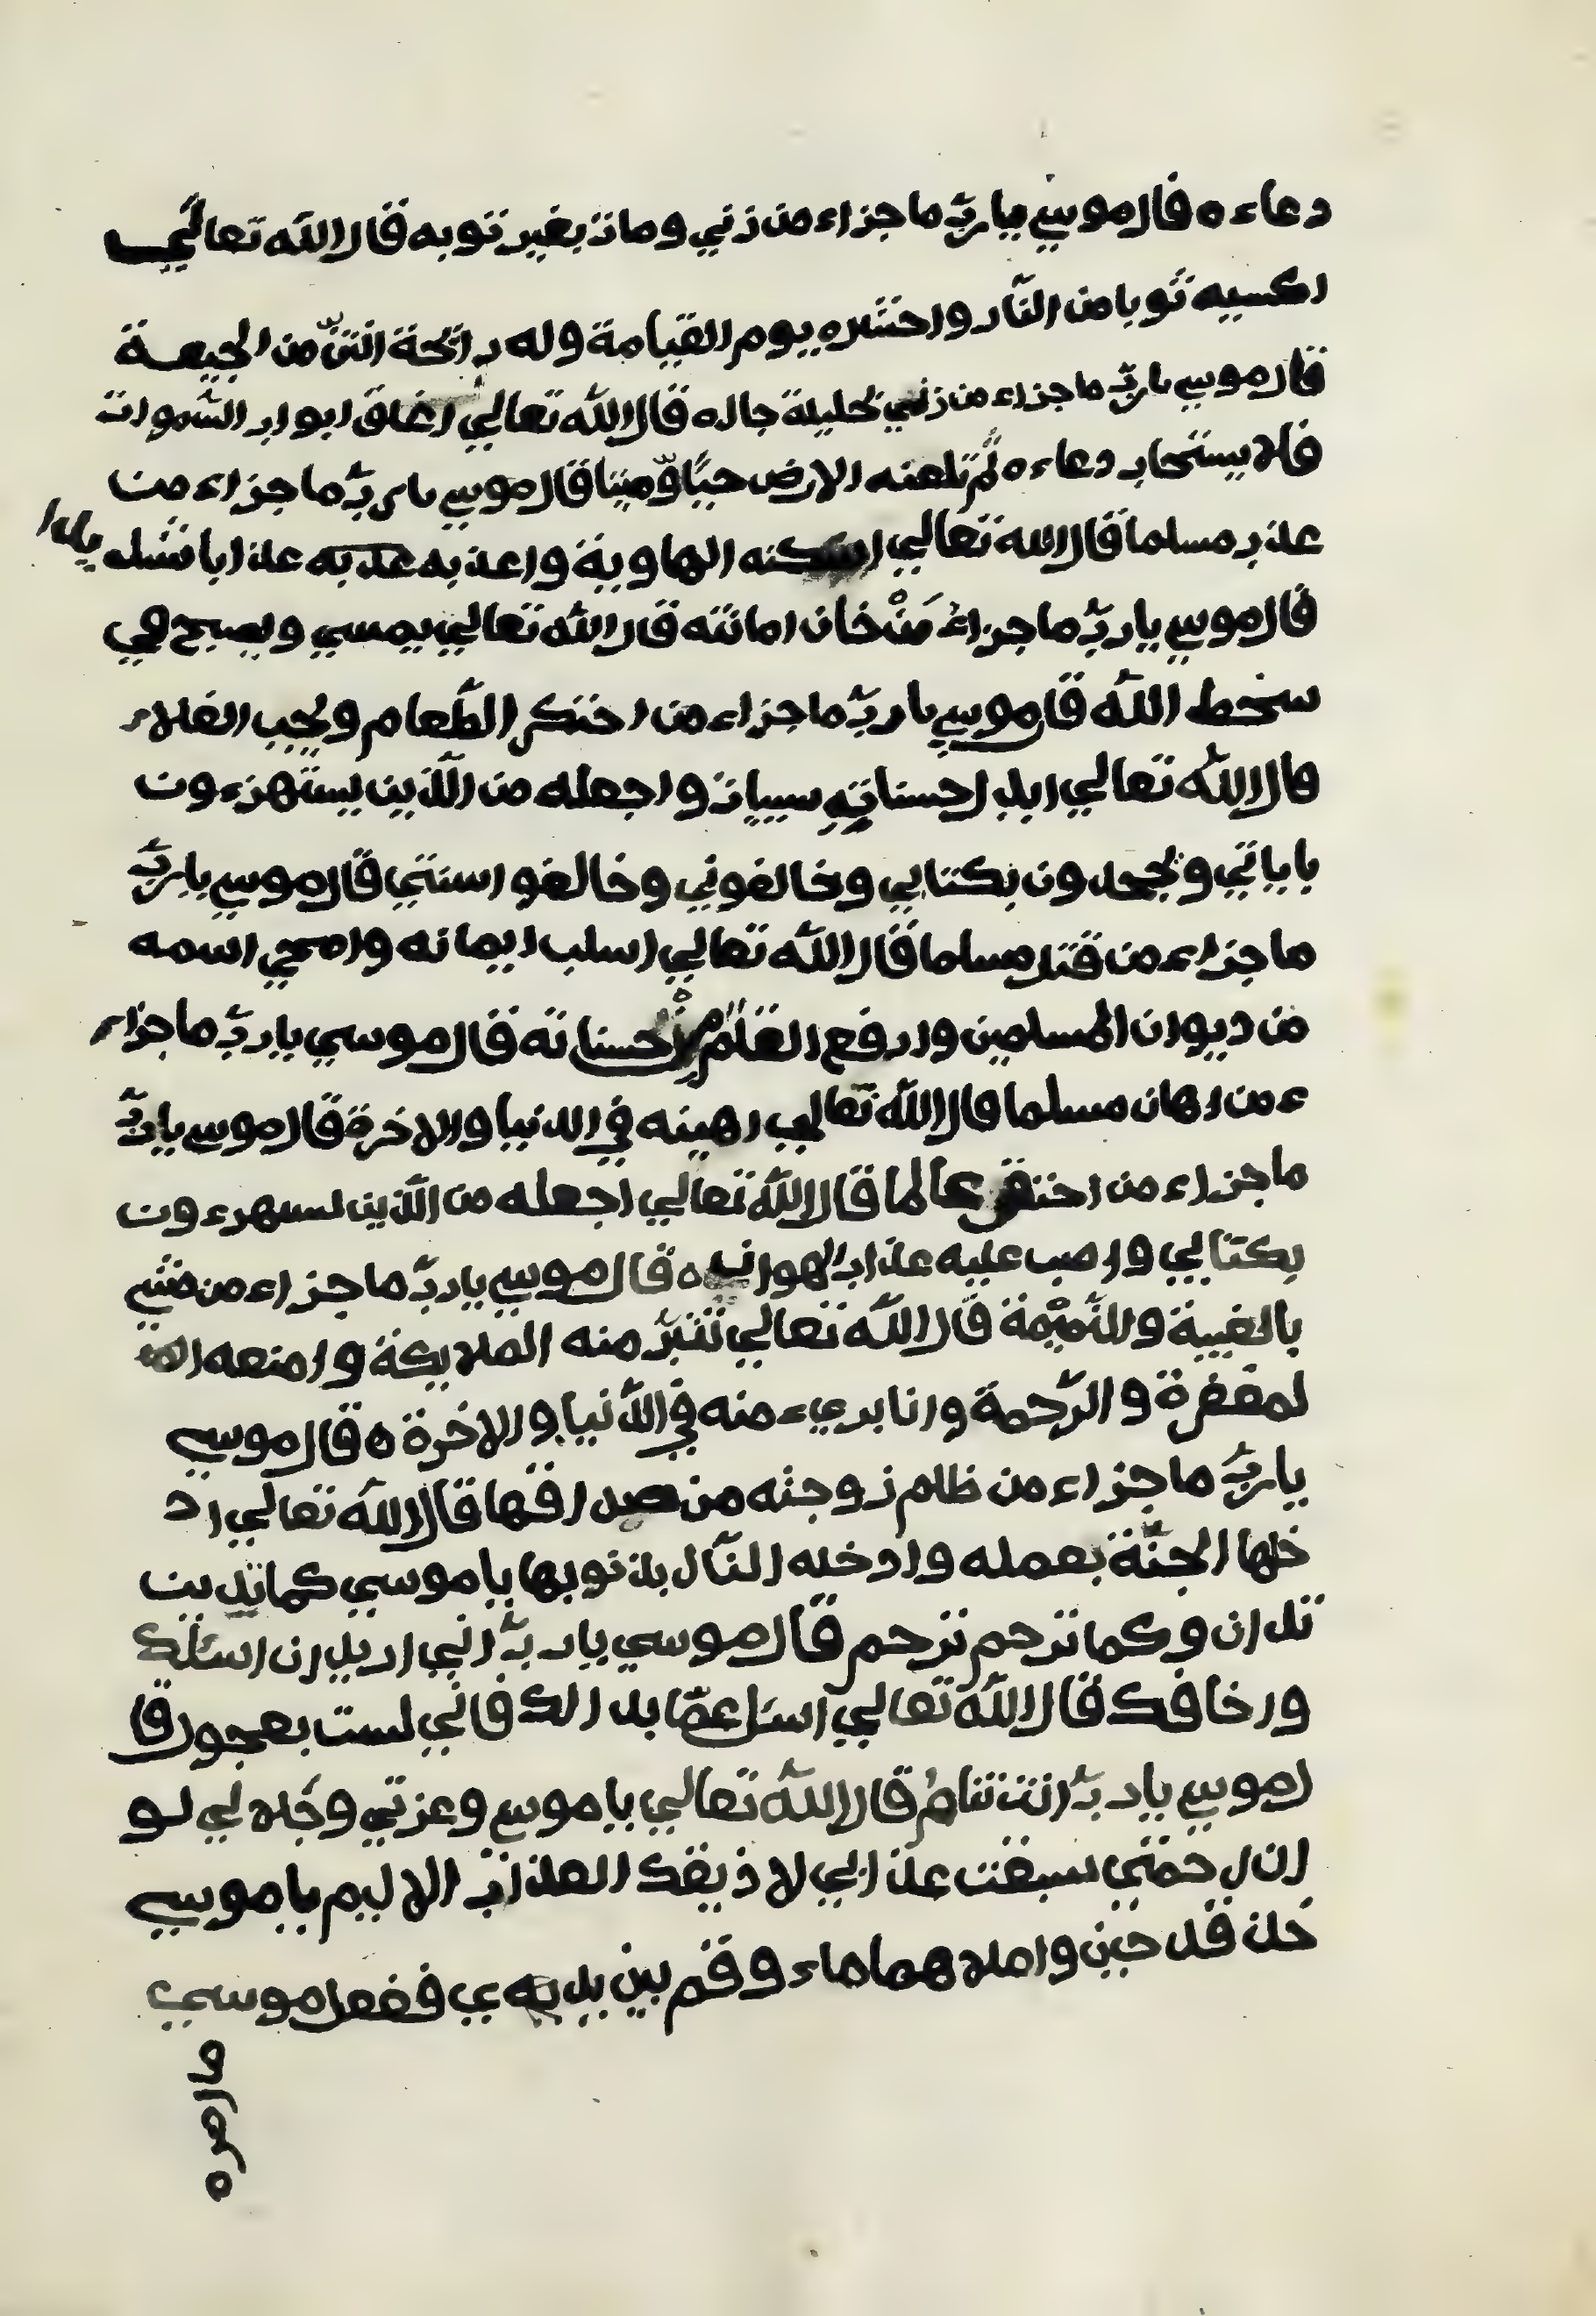 دعاءه قال موسي يا ربّ ما جزاء من زني ومات بغير توبه قال الله تعالي
اكسيه ثوبا من النّار واحشره يوم القيامة وله رائحة انتنّ من الجيفة
قال موسي يا ربّ ما جزاء من زني بحليلة جاره قال الله تعالي اغلق ابواب السّموات
فلا يستجاب دعاءه ثم تلعنه الارض حيّا وّميتا قال موسي يا ربّ ما جزاء من
عذب مسلما قال الله تعالي اسكنه الهاوية واعذبه عذبه عذابا شديدا
قال موسي يا ربّ ما جزاء مَنْ خان امانته قال الله تعالي يمسي ويصبح في
سخط الله قا موسي يا ربّ ما جزاء من احتكر الطّعام ويحب الغلاء
قال الله تعالي ابدل حسناتهِ سييات واجعله من الّذين يستهزءون
باياتي ويجحدون بكتابي وخالفوني وخالفو اسنتي قال موسي يا ربّ
ما جزاء من قتل مسلما قال الله تعالي اسلب ايمانه وامحي اسمه
من ديوان المسلمين وارفع القلم من حسناته قال موسي يا ربّ ما جزاء
ء من اهان مسلما قال الله تعالي اهينه في الدنيا والاخرة قال موسي يا ربّ
ما جزاء من احتقر عالما قال الله تعالي اجعله من الّذين يستهزءون
بكتابي واصب عليه عذاب الهوان ه قال موسي يا ربّ ما جزاء من مشي
بالغيبة والنّميمة قال الله تعالي تتبرّ منه الملايكة وامنعه
لمغفرة والرّحمة وانا بريء منه في الدّنيا والاخرة ه قال موسي
يا ربّ ما جزاء من ظلم زوجته من صداقها قال الله تعالي اد
خلها الجنّة بعمله وادخله النّار بذنوبها يا موسي كما تدين
تدان وكما ترحم ترحم قال موسي يا ربّ اني اريد ان اسئلك
واخافك قال الله تعالي اسئل عمّا بدالك فاني لست بعجول قا
ل موسي يا ربّ انت تنام قال الله تعالي يا موسي وعزتي وجلالي لو
ان رحمتي سبقت عذابي لاذيقك العذاب الاليم يا موسي
خذ قدحين واملاهما ماء وقم بين يديه ي ففعل موسي
ما امره